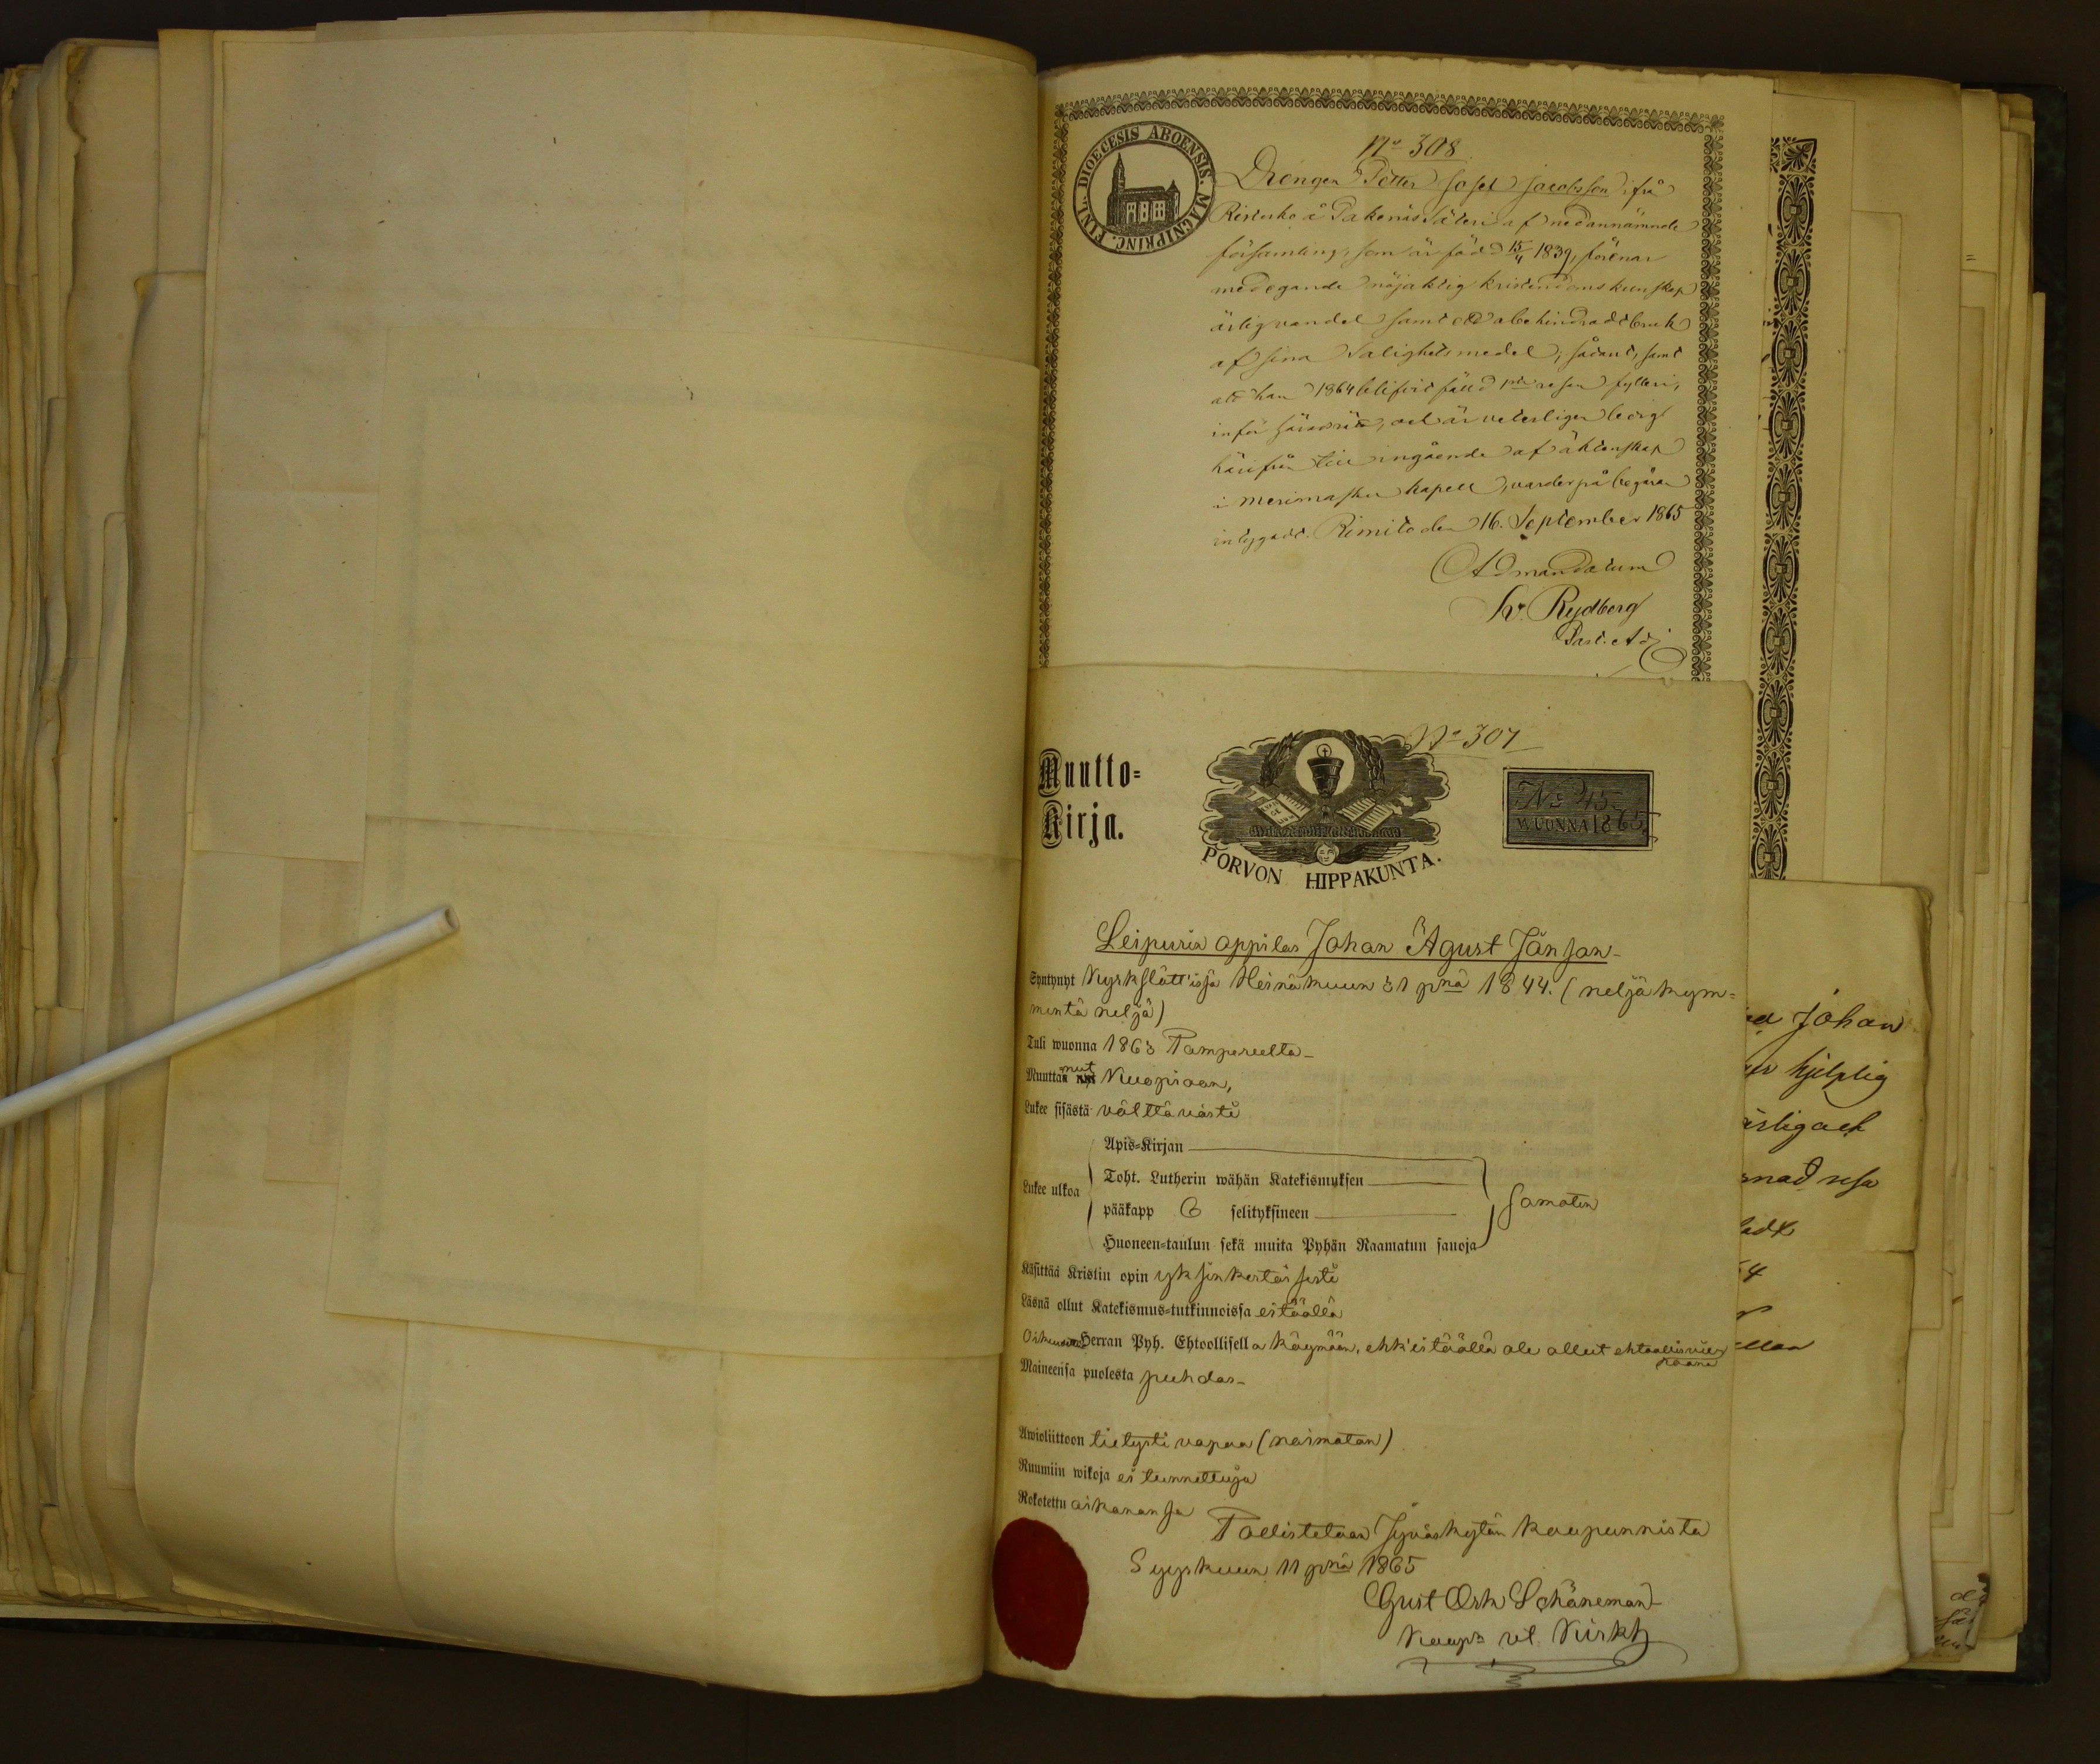 DIOECESIS ABOENSIS. MAGNIPRINC. FINL.
No 308
Drengen Petter Josef Jacobsson ifrå
Ristniko å Pakenäs Säteri af nedannämnde
församling, som är född 15/4 1839, förenar
med egande nöjaktig kristendoms kunskap
ärlig vandel samt obehindradt bruk
af sina Salighetsmedel; sådant, samt
att han 1864 blifvit fälld 1sta resan fylleri,
inför häradsrätt, och är veterligen ledig
härifrån till ingående af äktenskap
i Merimasku Kapell, varder på begäran
intygadt. Rimito den 16. September 1865
Ad mandatum
Rydberg
Past. Adj.
No 307
Muutto-
Kirja.
PORVON HIPPAKUNTA.
No 45.
WUONNA 1865.
Leipurin oppilas Johan August Jänsson
Syntynyt Kyrkslätt'issä Heinäkuun 31 pnä 1844. (neljäkym-
mentä neljä)
Tuli wuonna 1863 Tampereelta
Muuttanut Kuopioon,
Lukee sisästä välttävästi
Lukee ulkoa
Apis-Kirjan
Toht. Lutherin wähän Katekismuksen
pääkapp 6 selityksineen
Huoneen-taulun sekä muita Pyhän Raamatun sanoja
samaten
Käsittää Kristin opin yksinkertaisesti
Läsnä ollut Katekismus-tutkinnoissa ei täällä
Oikeutettu Herran Pyh. Ehtoollisella käymään, ehk'ei täällä ole ollut ehtoollisvie-
raana
Maineensa puolesta puhdas
Awioliittoon tietysti vapaa (naimatan)
Ruumiin wikoja ei tunnettuja
Rokotettu aikanansa
Todistetaan Jyväskylän kaupunnista
Syyskuun 11 pnä 1865
Gust Osk Schöneman
Kaup. vt. Kirkh
Johan
hjelplig
ärlig och